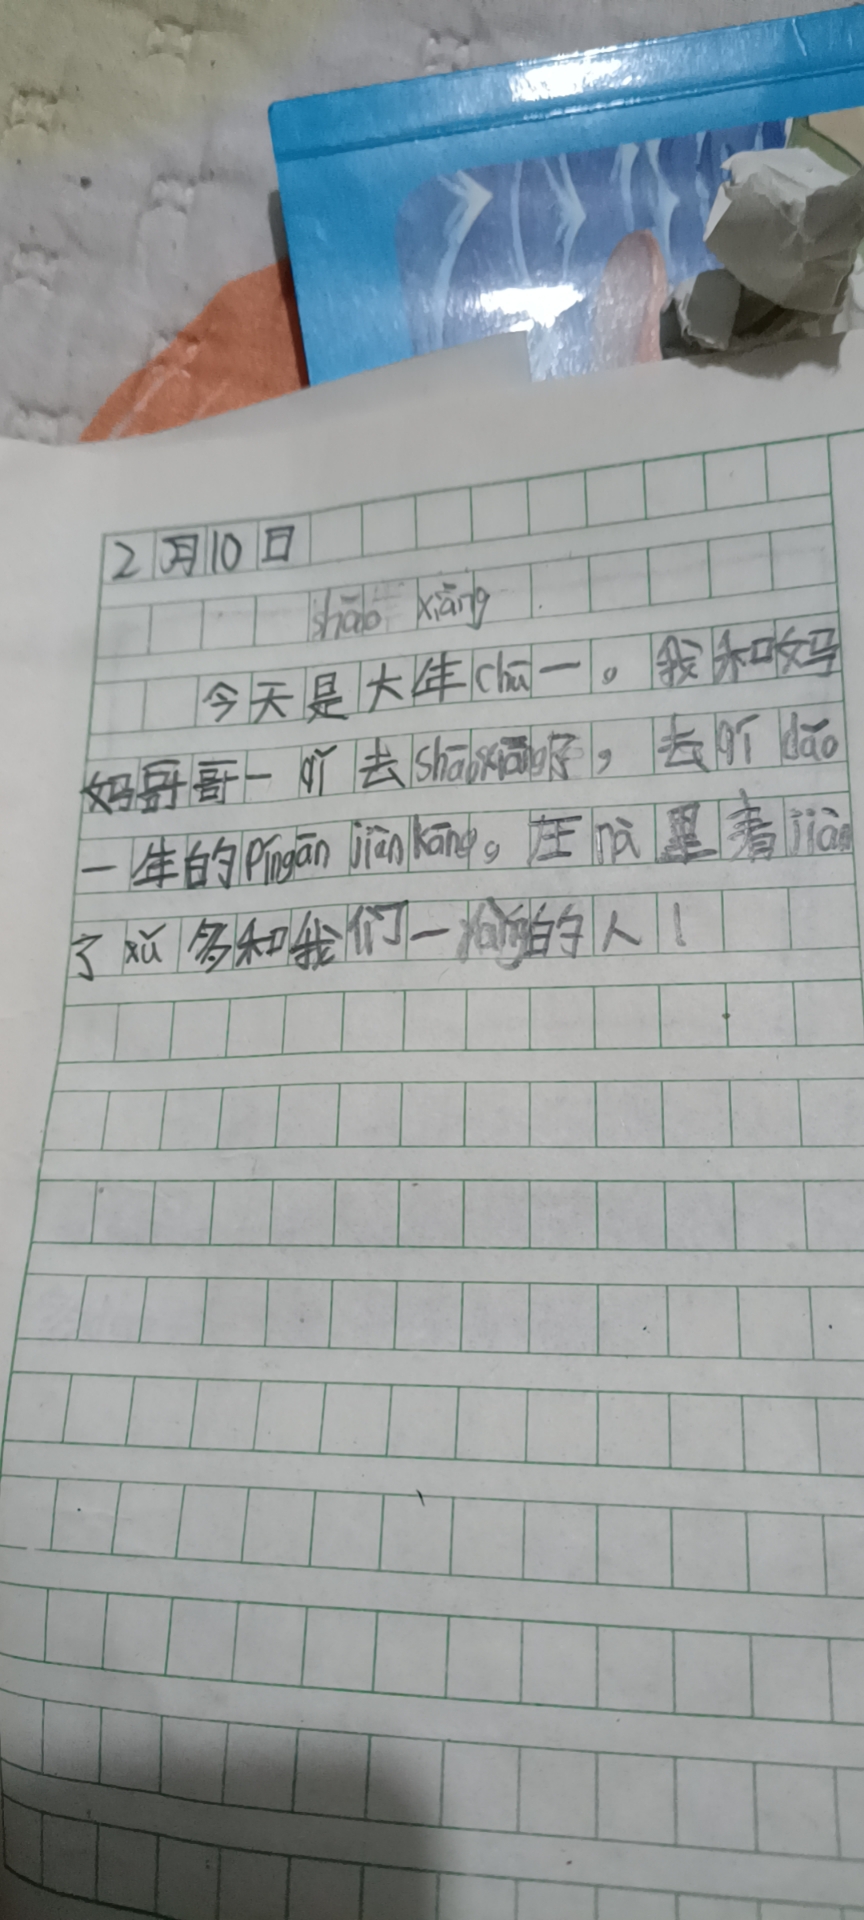 2月10日
shāo xiāng
今天是大年chū一。我和妈
妈哥哥一吖去shāoxiāng仔，去吖dǎo
一年的Píngān jiànkāng。在nà里看jiàn
了xǔ多和我们一yàng的人！